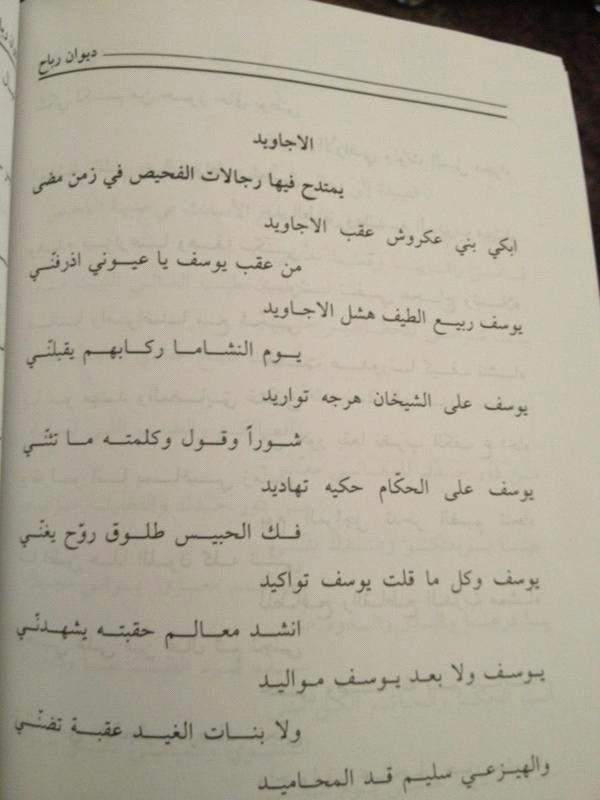 ديوان رباح
الاجاويد
يمتدح فيها رجالات الفحيص في زمن مضى
ابكي بني عكروش عقب الاجاويد
من عقب يوسف يا عيوني اذرفنّي
يوسف ربيع الطيف هشل الاجاويد
يوم النشاما ركابهم يقبلنّي
يوسف على الشيخان هرجه تواريد
شوراً وقول وكلمته ما تثنّي
يوسف على الحكّام حكيه تهاديد
فك الحبيس طلوق روّح يغنّي
يوسف وكل ما قلت يوسف تواكيد
انشد معالم حقبته يشهدنّي
يوسف ولا بعد يوسف مواليد
ولا بنات الغيد عقبة تضنّي
والهيزعي سليم قد المحاميد